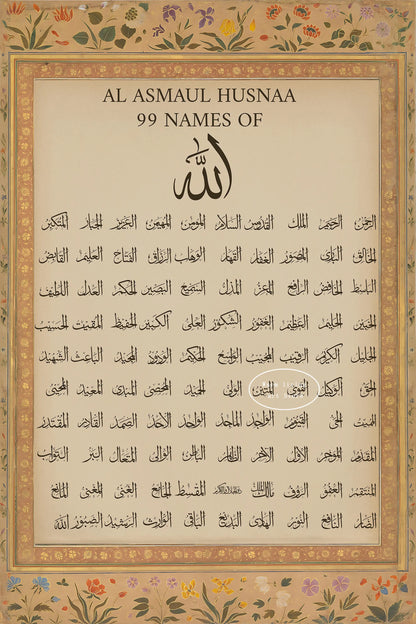 AL ASMAUL HUSNAA
99 NAMES OF
الله
الرحمن الرحيم الملك القدوس السلام المؤمن المهيمن العزيز الجبار المتكبر
الخالق البارئ المصور الغفار القهار الوهاب الرزاق الفتاح العليم القابض
الباسط الخافض الرافع المعز المذل السميع البصير الحكم العدل اللطيف
الخبير الحليم العظيم الغفور الشكور العلي الكبير الحفيظ المقيت الحسيب
الجليل الكريم الرقيب المجيب الواسع الحكيم الودود المجيد الباعث الشهيد
الحق الوكيل القوي المتين الولي الحميد المحصي المبدئ المعيد المحيي
المميت الحي القيوم الواجد الماجد الواحد الاحد الصمد القادر المقتدر
المقدم المؤخر الاول الاخر الظاهر الباطن الوالي المتعال البر التواب
المنتقم العفو الرؤف مالك الملك ذو الجلال والاكرام المقسط الجامع الغني المغني المانع
الضار النافع النور الهادي البديع الباقي الوارث الرشيد الصبور الله